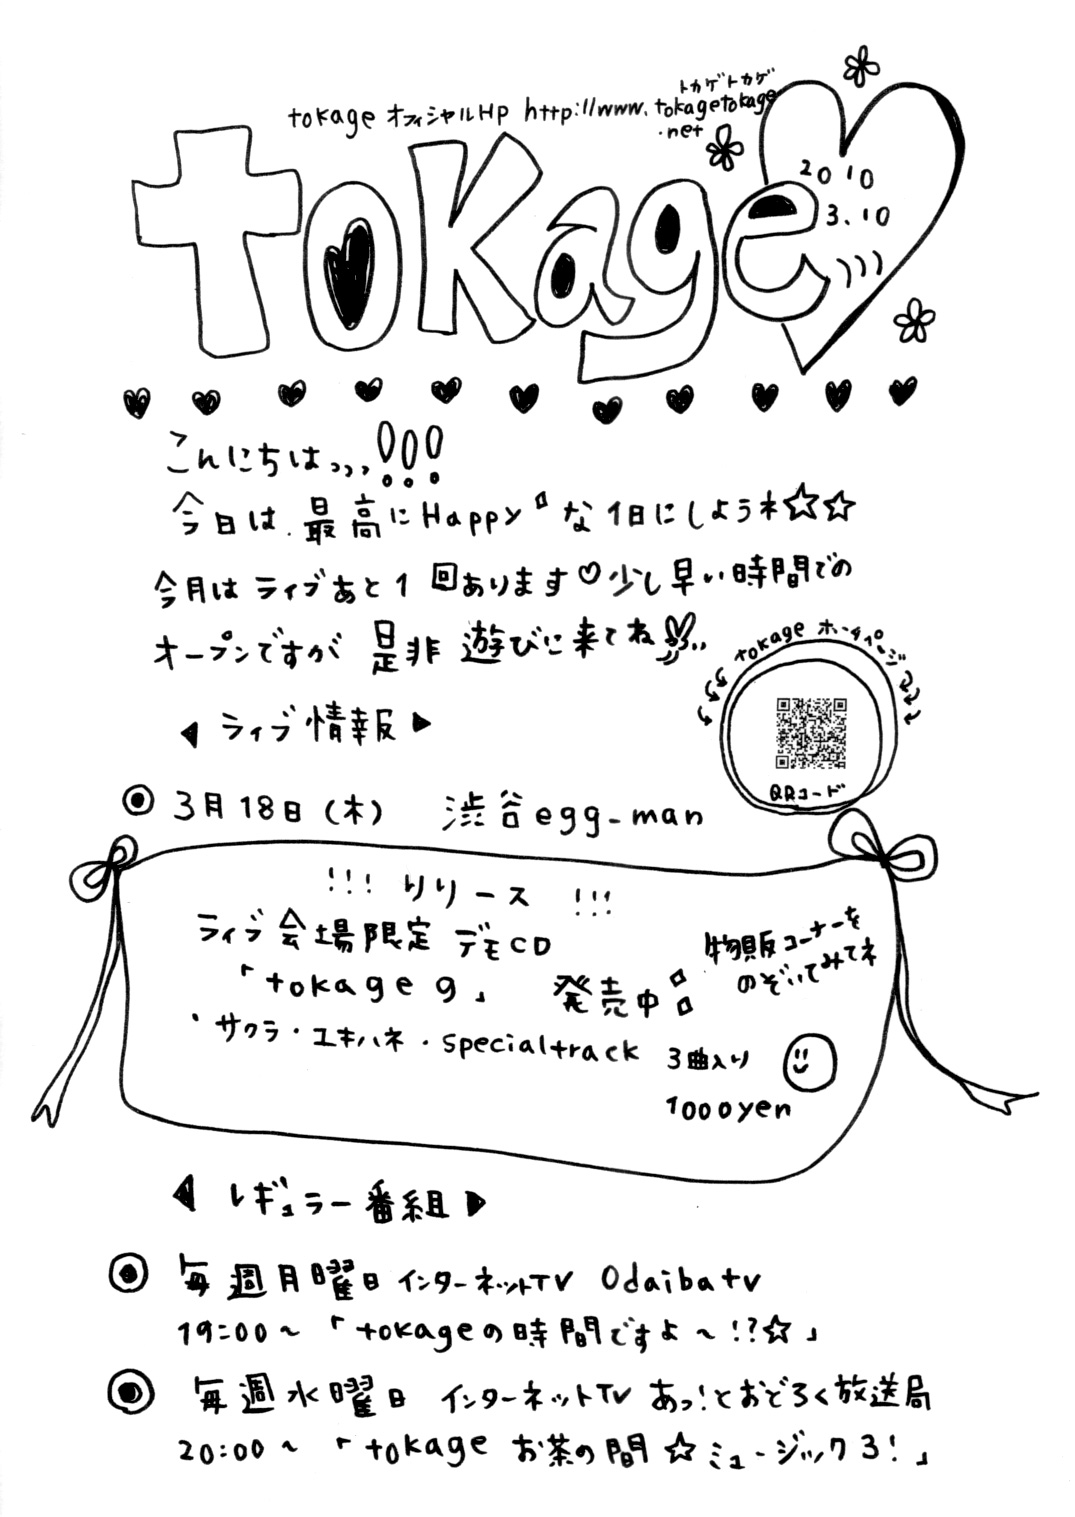 トカゲトカゲ
tokage オフィシャルHP http://www.tokagetokage
.net
tokage
2010
3.10
こんにちは、、、!!!
今日は、最高にHappyな1日にしようネ☆☆
今月はライブあと1回あります♡少し早い時間での
オープンですが是非遊びに来てね
tokage ホームページ
QRコード
◀ ライブ情報 ▶
◎ 3月18日(木) 渋谷egg-man
!!! リリース !!!
ライブ会場限定 デモCD
「tokage g」 発売中
物販コーナーを
のぞいてみてネ
・サクラ・ユキハネ・specialtrack 3曲入り
1000yen
◀ レギュラー番組 ▶
◎ 毎週月曜日 インターネットTV Odaibatv
19:00〜「tokageの時間ですよ〜!?☆」
◎ 毎週水曜日 インターネットTV あっ!とおどろく放送局
20:00〜「tokage お茶の間☆ミュージック3!」